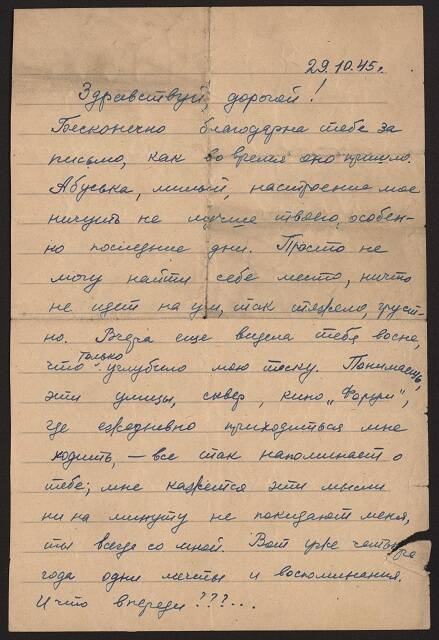 29.10.45г.
Здравствуй, дорогой!
Бесконечно благодарна тебе за
письмо, как во время оно пришло.
Абуська, милый, настроение мое
ничуть не лучше твоего, особен-
но последние дни. Просто не
могу найти себе место, ничто
не идет на ум, так тяжело, груст-
но. Вчера еще видела тебя во сне,
что только углубило мою тоску. Понимаешь,
эти улицы, сквер, кино „Форум",
где ежедневно приходиться мне
ходить, — все так напоминает о
тебе; мне кажется эти мысли
ни на минуту не покидают меня,
ты всегда со мной. Вот уже четыре
года одни мечты и воспоминания.
И что впереди???...